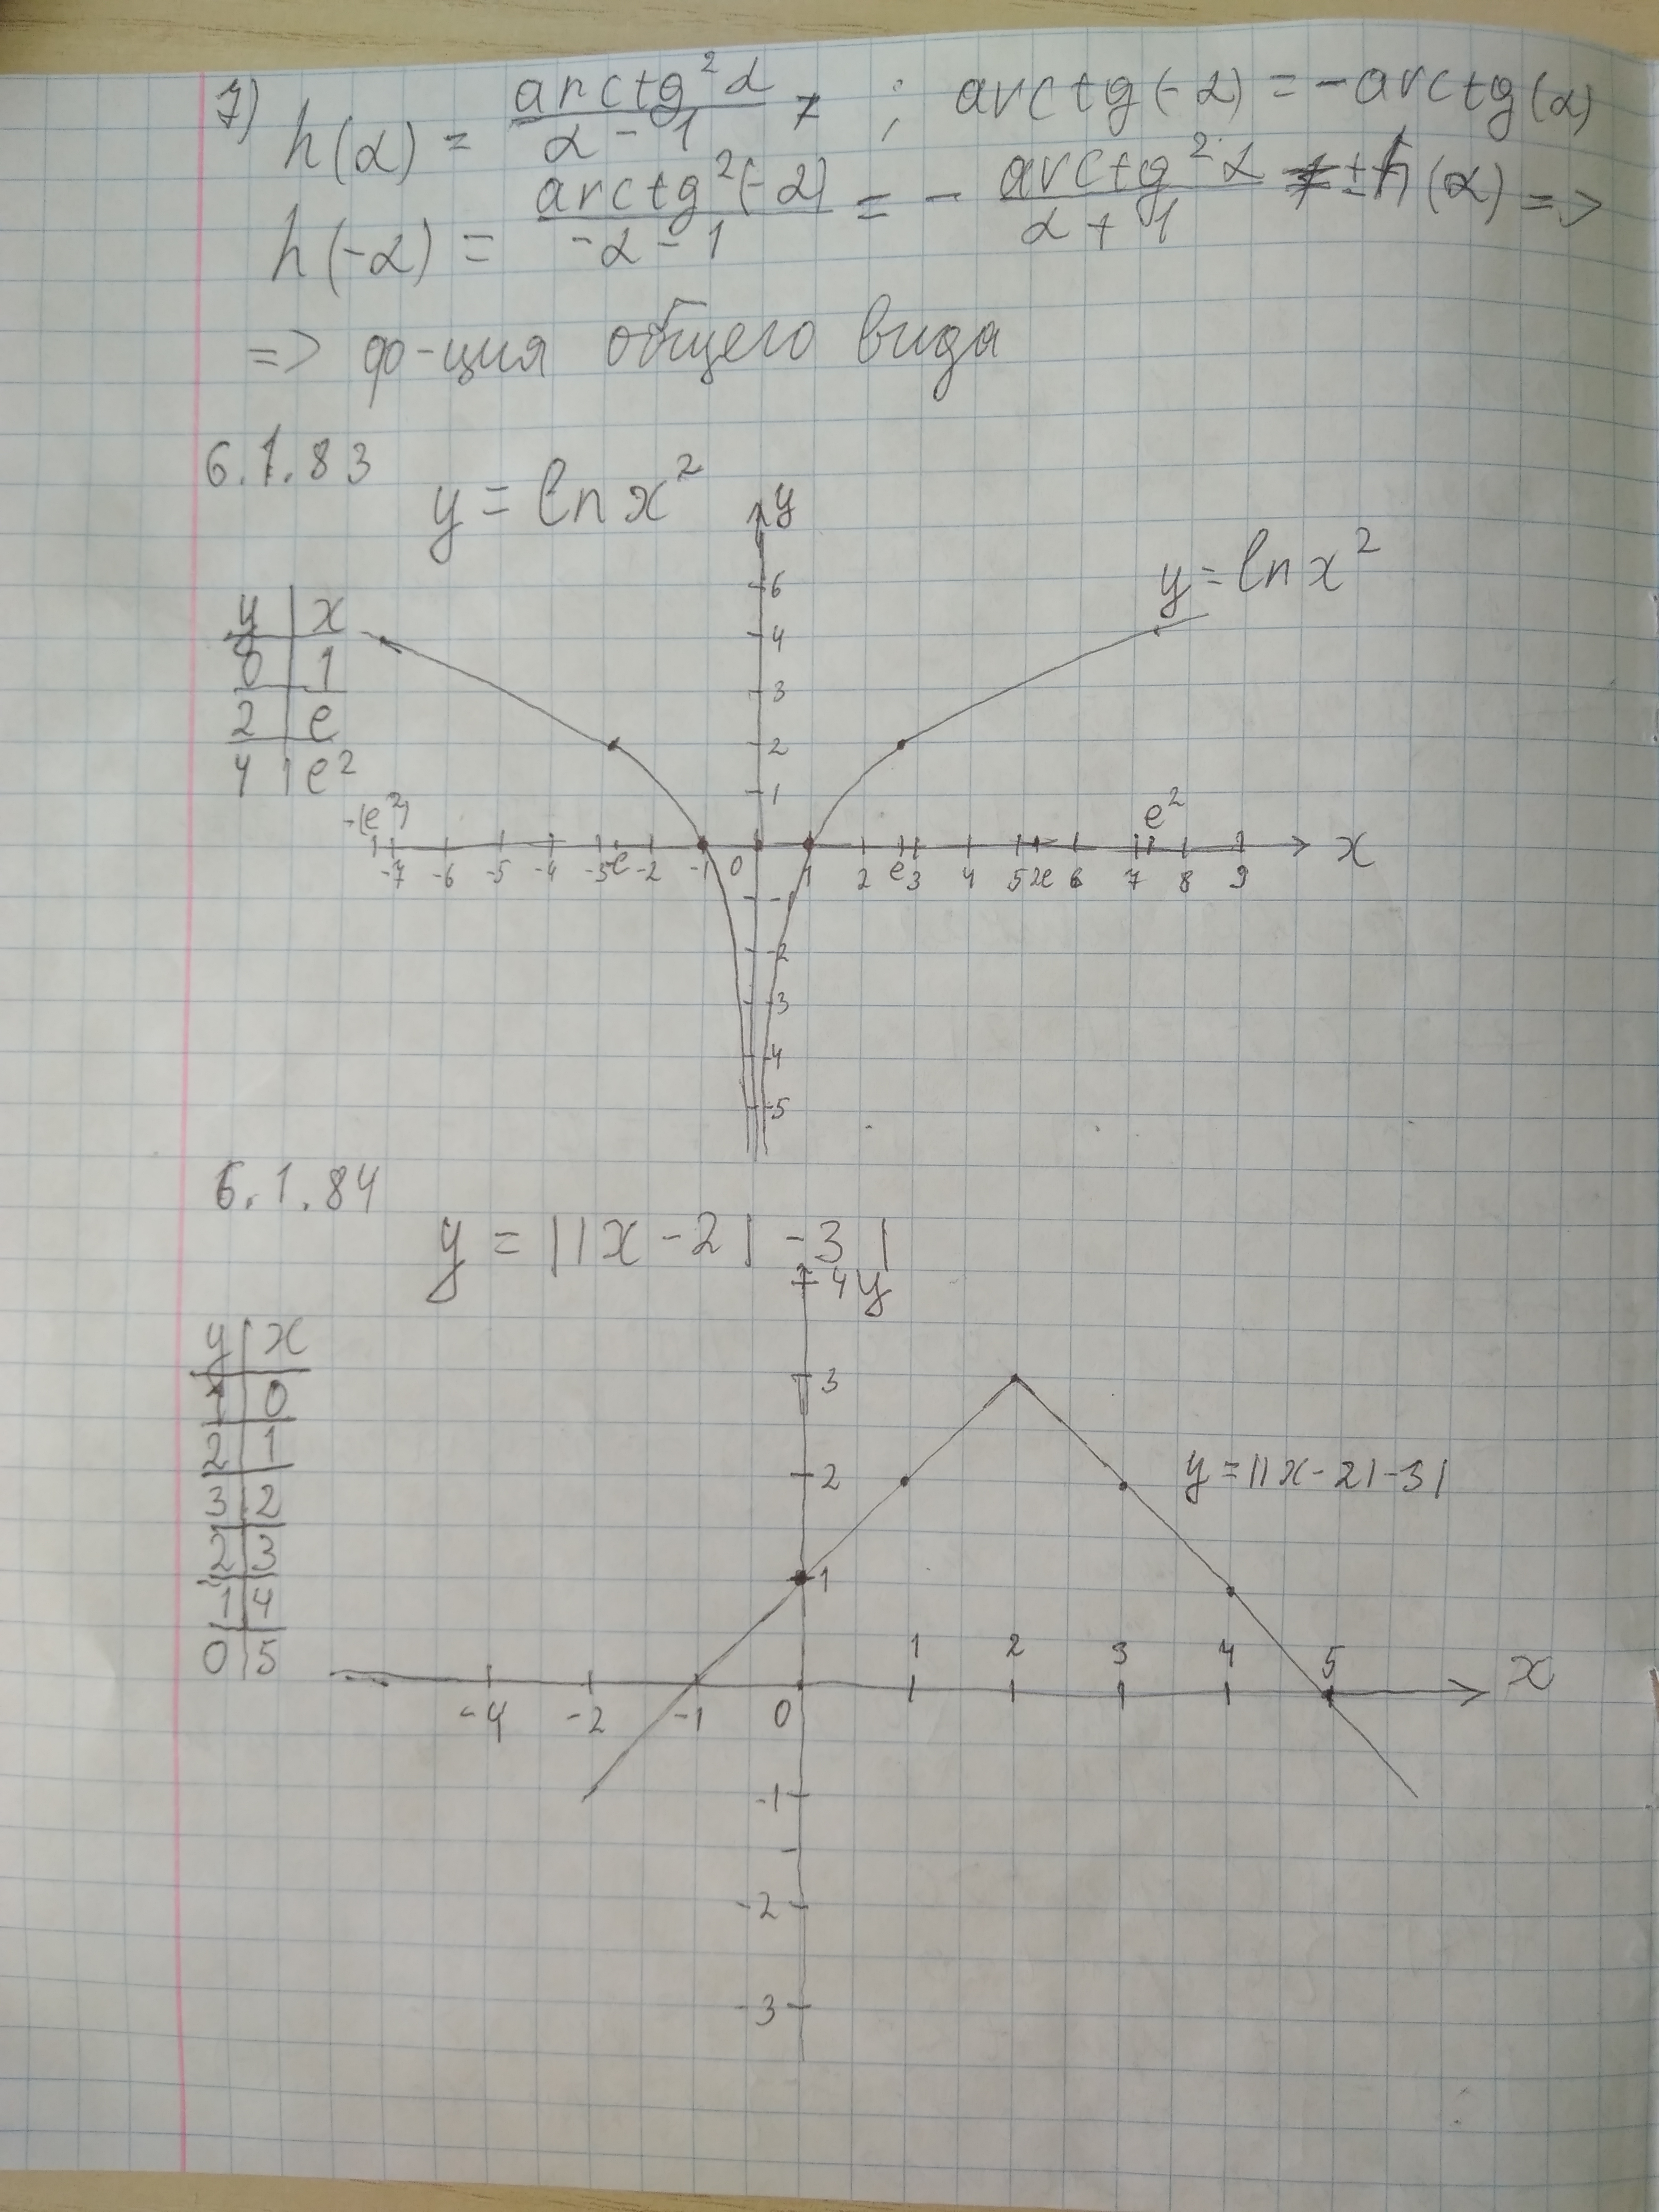 7) h(α) = arctg²α / α - 1 ; arctg(-α) = -arctg(α)
h(-α) = arctg²(-α) / -α - 1 = - arctg²α / α + 1 ≠ ±h(α) =>
=> ф-ция общего вида
6.1.83
y = ln x²
y
y = ln x²
y | x
0 | 1
2 | e
4 | e²
6
4
3
2
1
-(e²) e²
-7 -6 -5 -4 -3 -e -2 -1 0 1 2 e 3 4 5 2e 6 7 8 9 x
-1
-2
-3
-4
-5
6.1.84
y = ||x - 2| - 3|
4 y
y | x
1 | 0
2 | 1
3 | 2
2 | 3
1 | 4
0 | 5
3
2
y = ||x - 2| - 3|
1
1 2 3 4 5 x
-4 -2 -1 0
-1
-2
-3